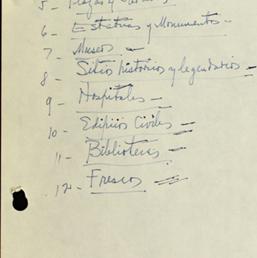 5 - Plazas y
6 - Estatuas y Monumentos -
7 - Museos -
8 - Sitios historicos y legendarios -
9 - Hospitales -
10 - Edificios Civiles -
11 - Bibliotecas -
12 - Frescos -